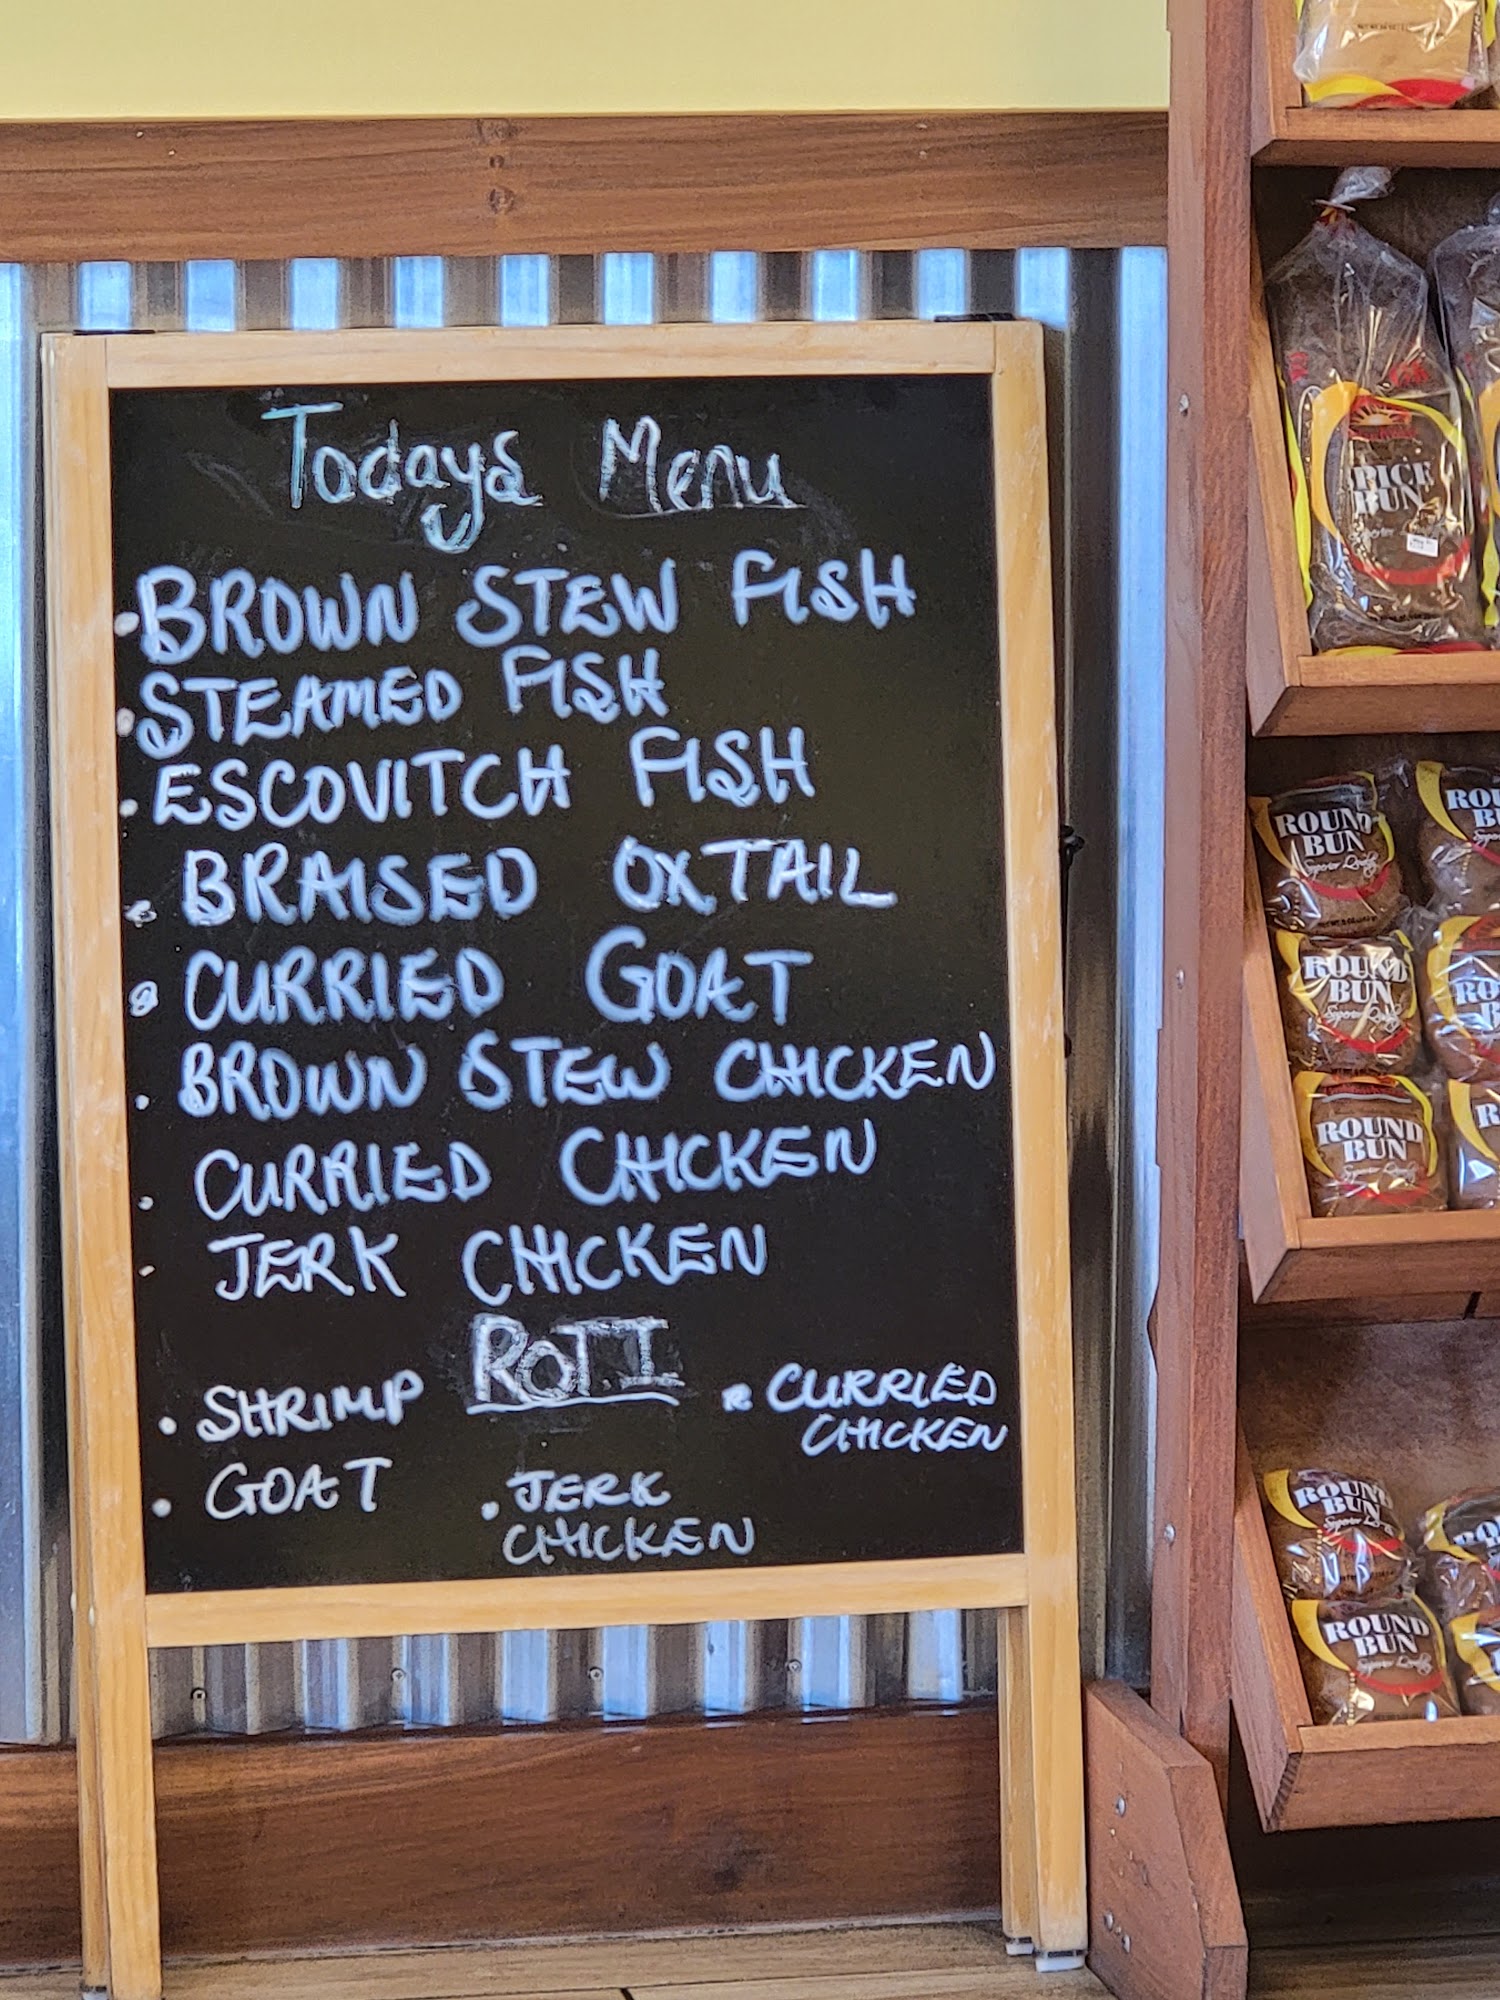 Todays Menu
• BROWN STEW FISH
• STEAMED FISH
• ESCOVITCH FISH
• BRAISED OXTAIL
• CURRIED GOAT
• BROWN STEW CHICKEN
• CURRIED CHICKEN
• JERK CHICKEN
ROTI
• SHRIMP
• GOAT
• JERK
CHICKEN
• CURRIED
CHICKEN
SPICE
BUN
Superior
ROUND
BUN
Superior Quality
ROUND
BUN
Superior Quality
ROUND
BUN
Superior Quality
ROUND
BUN
Superior
ROUND
BUN
Superior Quality